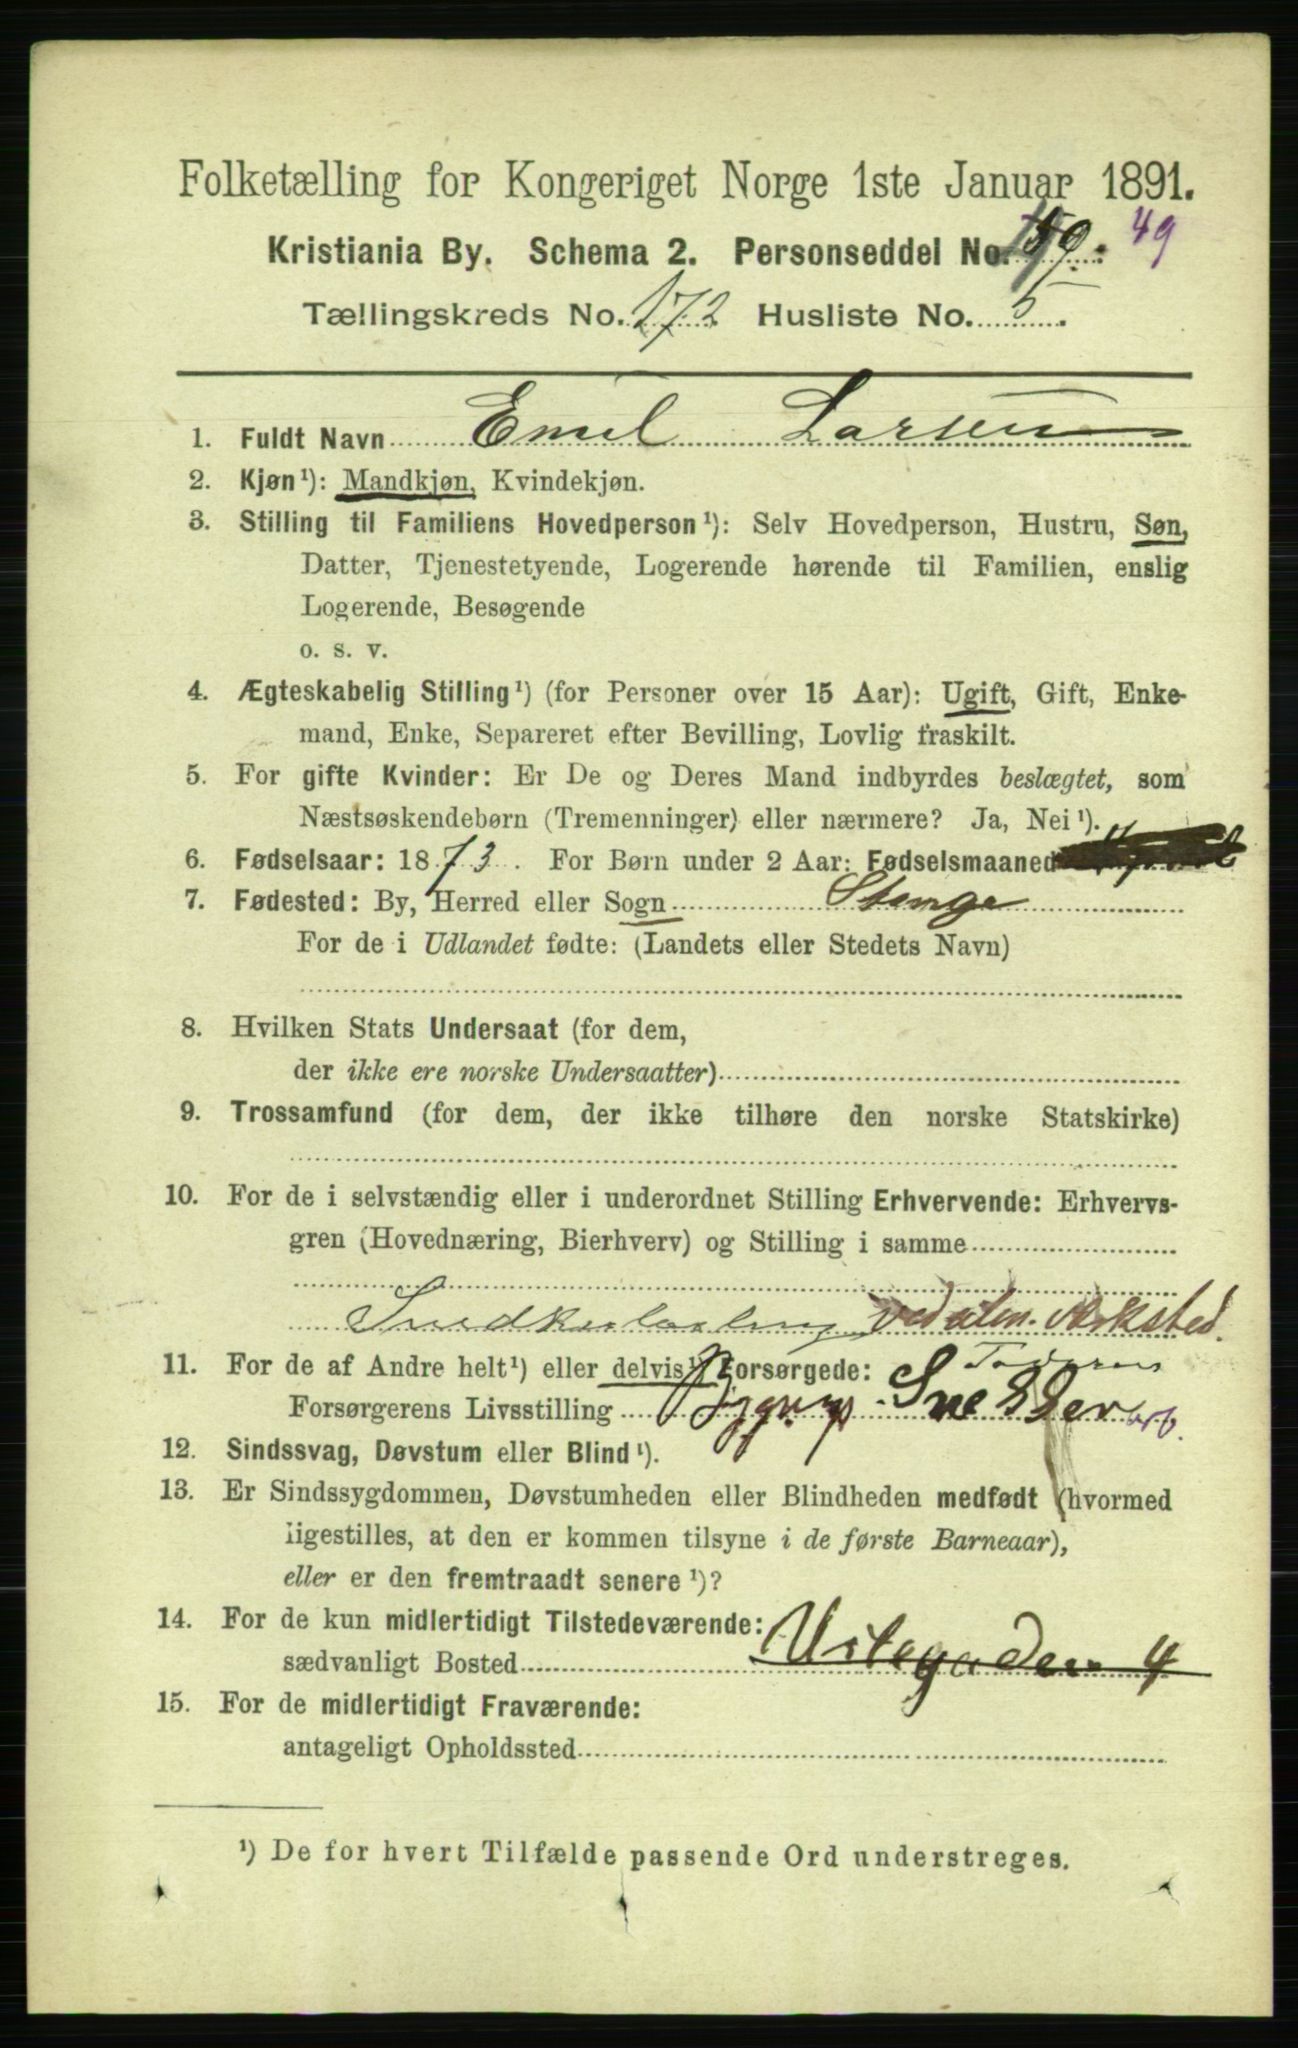 Folketælling for Kongeriget Norge 1ste Januar 1891.
Kristiania By. Schema 2. Personseddel No. 49
Tællingskreds No. 172 Husliste No. 5.
1. Fuldt Navn Emil Larsen
2. Kjøn¹): Mandkjøn, Kvindekjøn.
3. Stilling til Familiens Hovedperson¹): Selv Hovedperson, Hustru, Søn,
Datter, Tjenestetyende, Logerende hørende til Familien, enslig
Logerende, Besøgende
o. s. v.
4. Ægteskabelig Stilling¹) (for Personer over 15 Aar): Ugift, Gift, Enke-
mand, Enke, Separeret efter Bevilling, Lovlig fraskilt.
5. For gifte Kvinder: Er De og Deres Mand indbyrdes beslægtet, som
Næstsøskendebørn (Tremenninger) eller nærmere? Ja, Nei¹).
6. Fødselsaar: 1873. For Børn under 2 Aar: Fødselsmaaned
7. Fødested: By, Herred eller Sogn Stange
For de i Udlandet fødte: (Landets eller Stedets Navn)
8. Hvilken Stats Undersaat (for dem,
der ikke ere norske Undersaatter)
9. Trossamfund (for dem, der ikke tilhøre den norske Statskirke)
10. For de i selvstændig eller i underordnet Stilling Erhvervende: Erhvervs-
gren (Hovednæring, Bierhverv) og Stilling i samme
Snedkerlærling ved alm. Verksted.
11. For de af Andre helt¹) eller delvis¹) Forsørgede: Faderen
Forsørgerens Livsstilling Bygnings Snedker arb.
12. Sindssvag, Døvstum eller Blind¹).
13. Er Sindssygdommen, Døvstumheden eller Blindheden medfødt (hvormed
ligestilles, at den er kommen tilsyne i de første Barneaar),
eller er den fremtraadt senere¹)?
14. For de kun midlertidigt Tilstedeværende:
sædvanligt Bosted 4
15. For de midlertidigt Fraværende:
antageligt Opholdssted
¹) De for hvert Tilfælde passende Ord understreges.